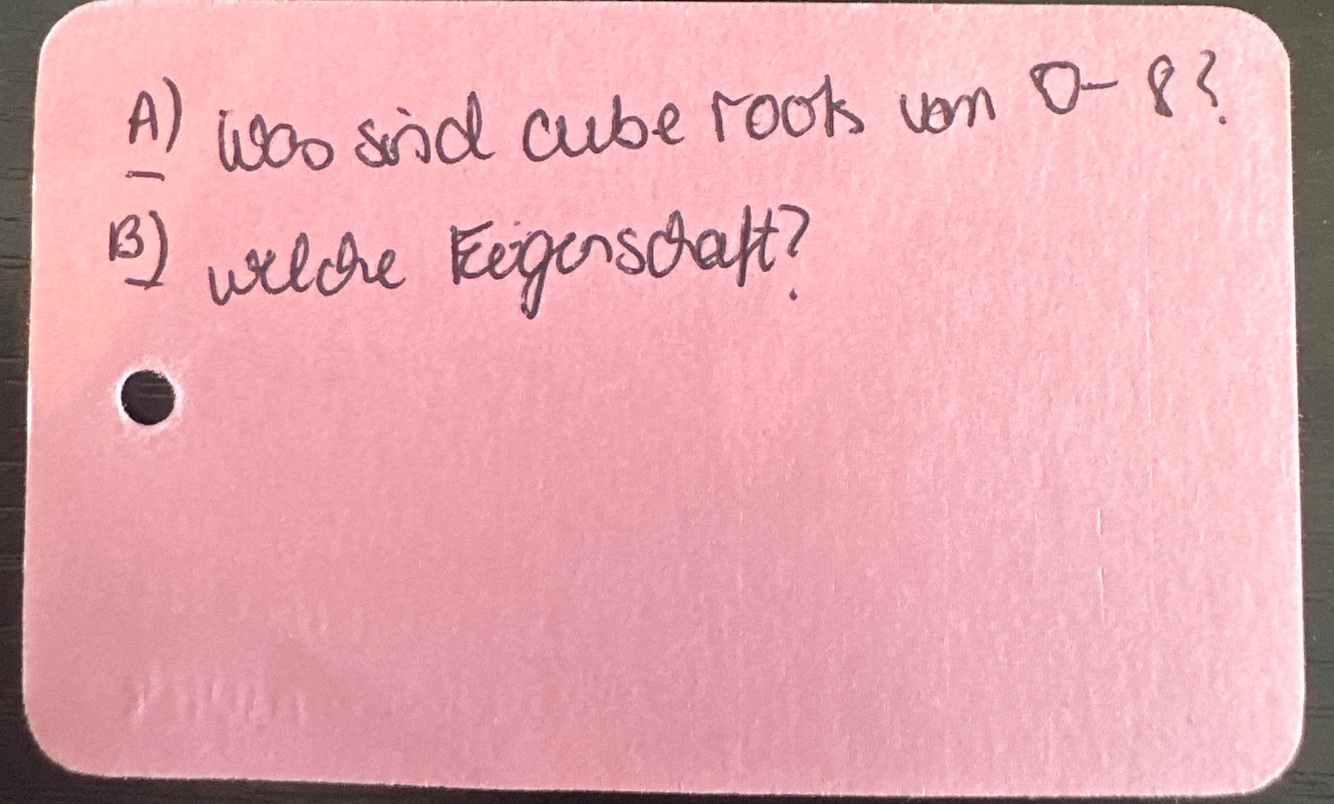 A) was sind cube roots von 0-8?
B) welche Eigenschaft?